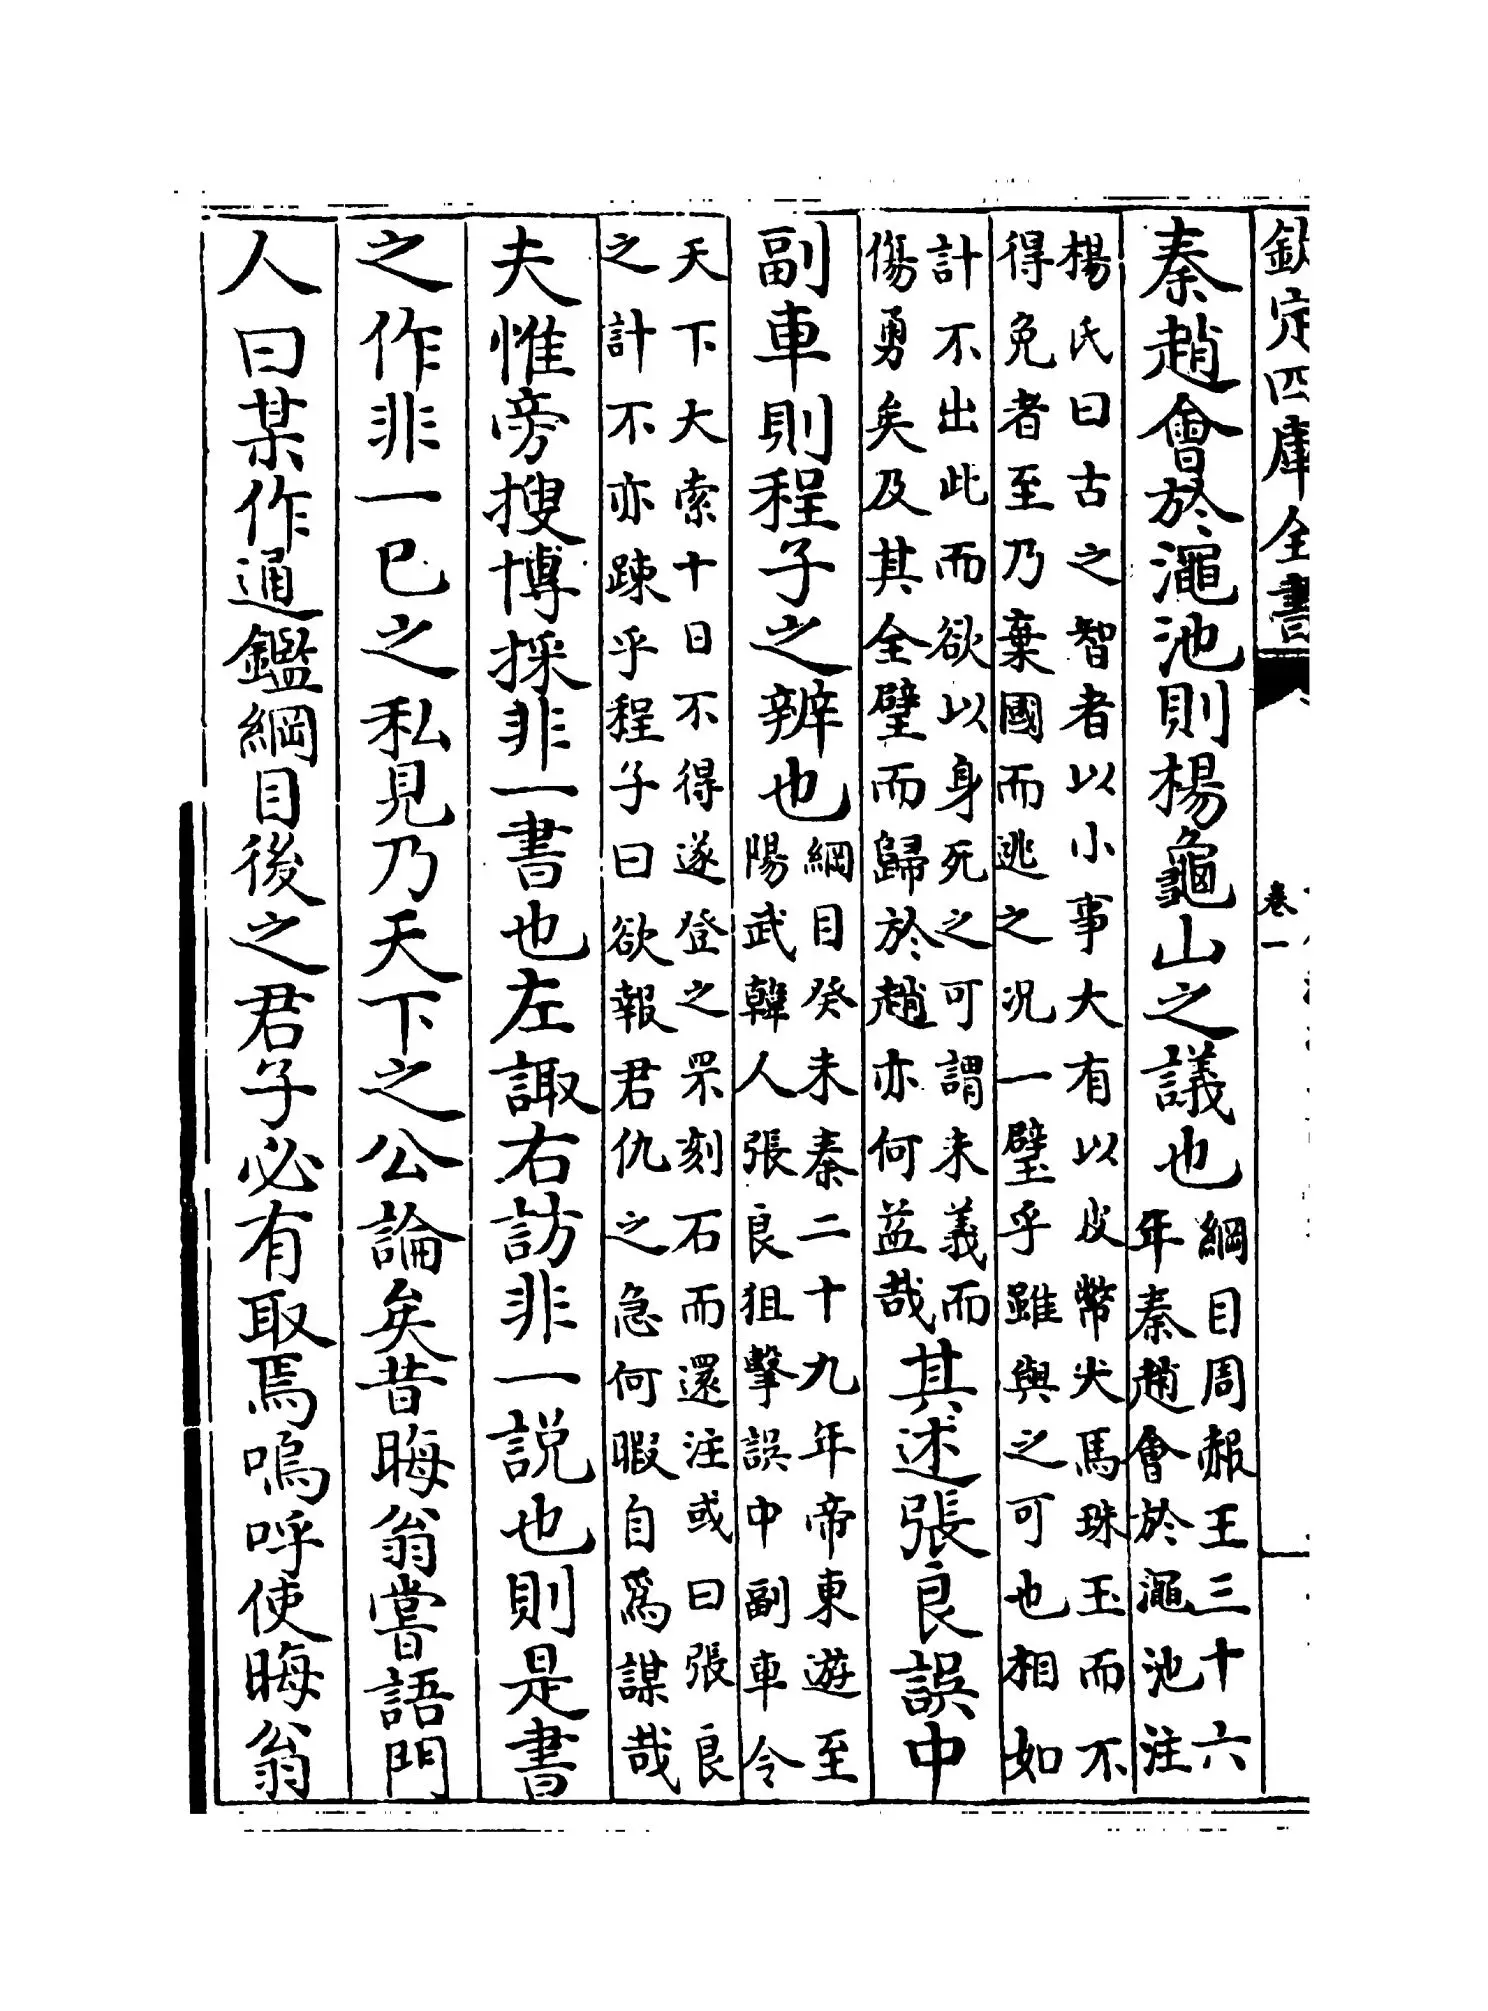 欽定四庫全書
卷一
秦趙會於澠池則楊龜山之議也
綱目周赧王三十六
年秦趙會於澠池注
楊氏曰古之智者以小事大有以皮幣犬馬珠玉而不
得免者至乃棄國而逃之况一璧乎雖與之可也相如
計不出此而欲以身死之可謂未義而
傷勇矣及其全璧而歸於趙亦何益哉
其述張良誤中
副車則程子之辨也
綱目癸未秦二十九年帝東遊至
陽武韓人張良狙擊誤中副車令
天下大索十日不得遂登之罘刻石而還注或曰張良
之計不亦踈乎程子曰欲報君仇之急何暇自爲謀哉
夫惟旁搜博採非一書也左諏右訪非一説也則是書
之作非一已之私見乃天下之公論矣昔晦翁嘗語門
人曰某作通鑑綱目後之君子必有取焉嗚呼使晦翁